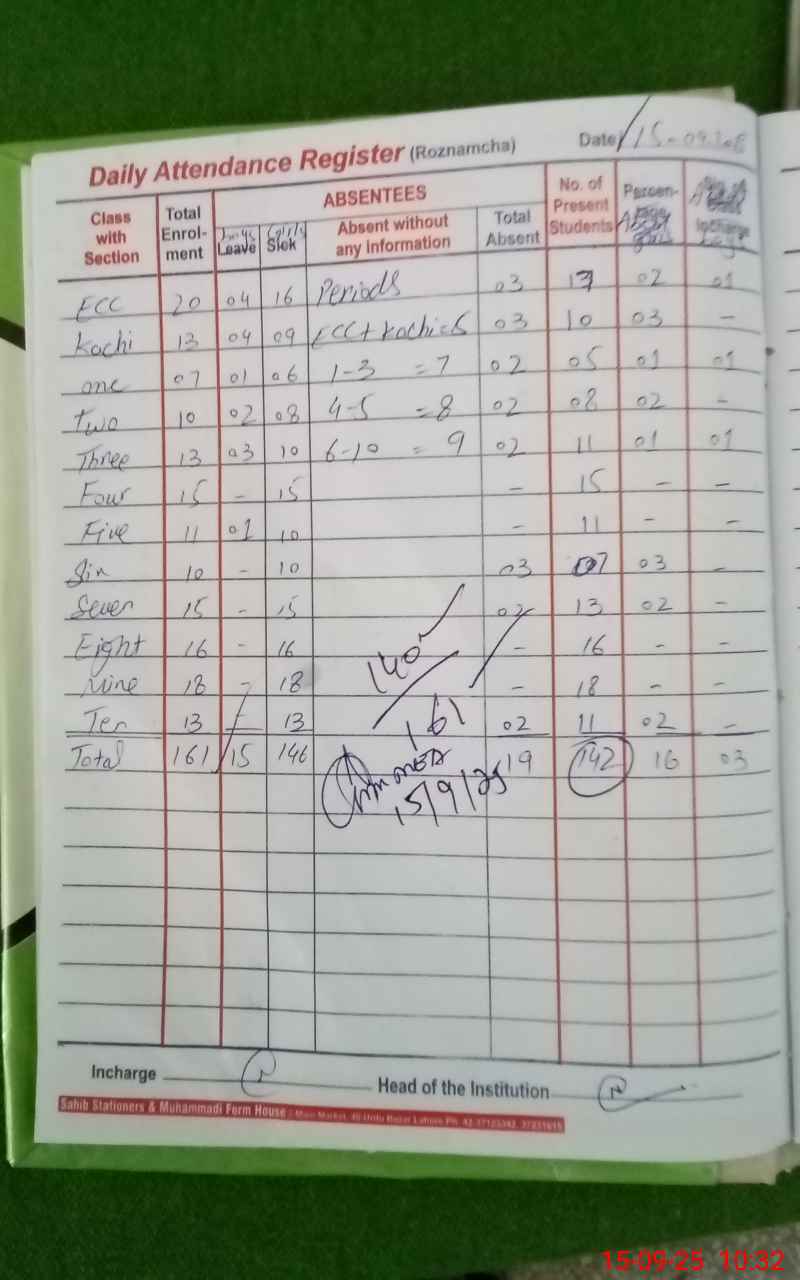 Daily Attendance Register (Roznamcha) Date 15-09-
Class with Section Total Enrol-ment ABSENTEES No. of Present Students Percen- Incharge
Leave Sick Absent without any information Total Absent
ECC 20 04 16 Periods 03 17 02 01
Kachi 13 04 09 ECC+kachi=5 03 10 03 -
one 07 01 06 1-3 =7 02 05 01 01
Two 10 02 08 4-5 =8 02 08 02 -
Three 13 03 10 6-10 = 9 02 11 01 01
Four 15 - 15 - 15 - -
Five 11 01 10 - 11 - -
Six 10 - 10 03 07 03 -
Seven 15 - 15 02 13 02 -
Eight 16 - 16 - 16 - -
Nine 18 - 18 - 18 - -
Ten 13 - 13 02 11 02 -
Total 161 15 146 19 142 16 03
140
161
15/9/25
Incharge
Head of the Institution
Sahib Stationers & Muhammadi Form House : Main Market, 40-Urdu Bazar Lahore Ph:
15-09-25 10:32